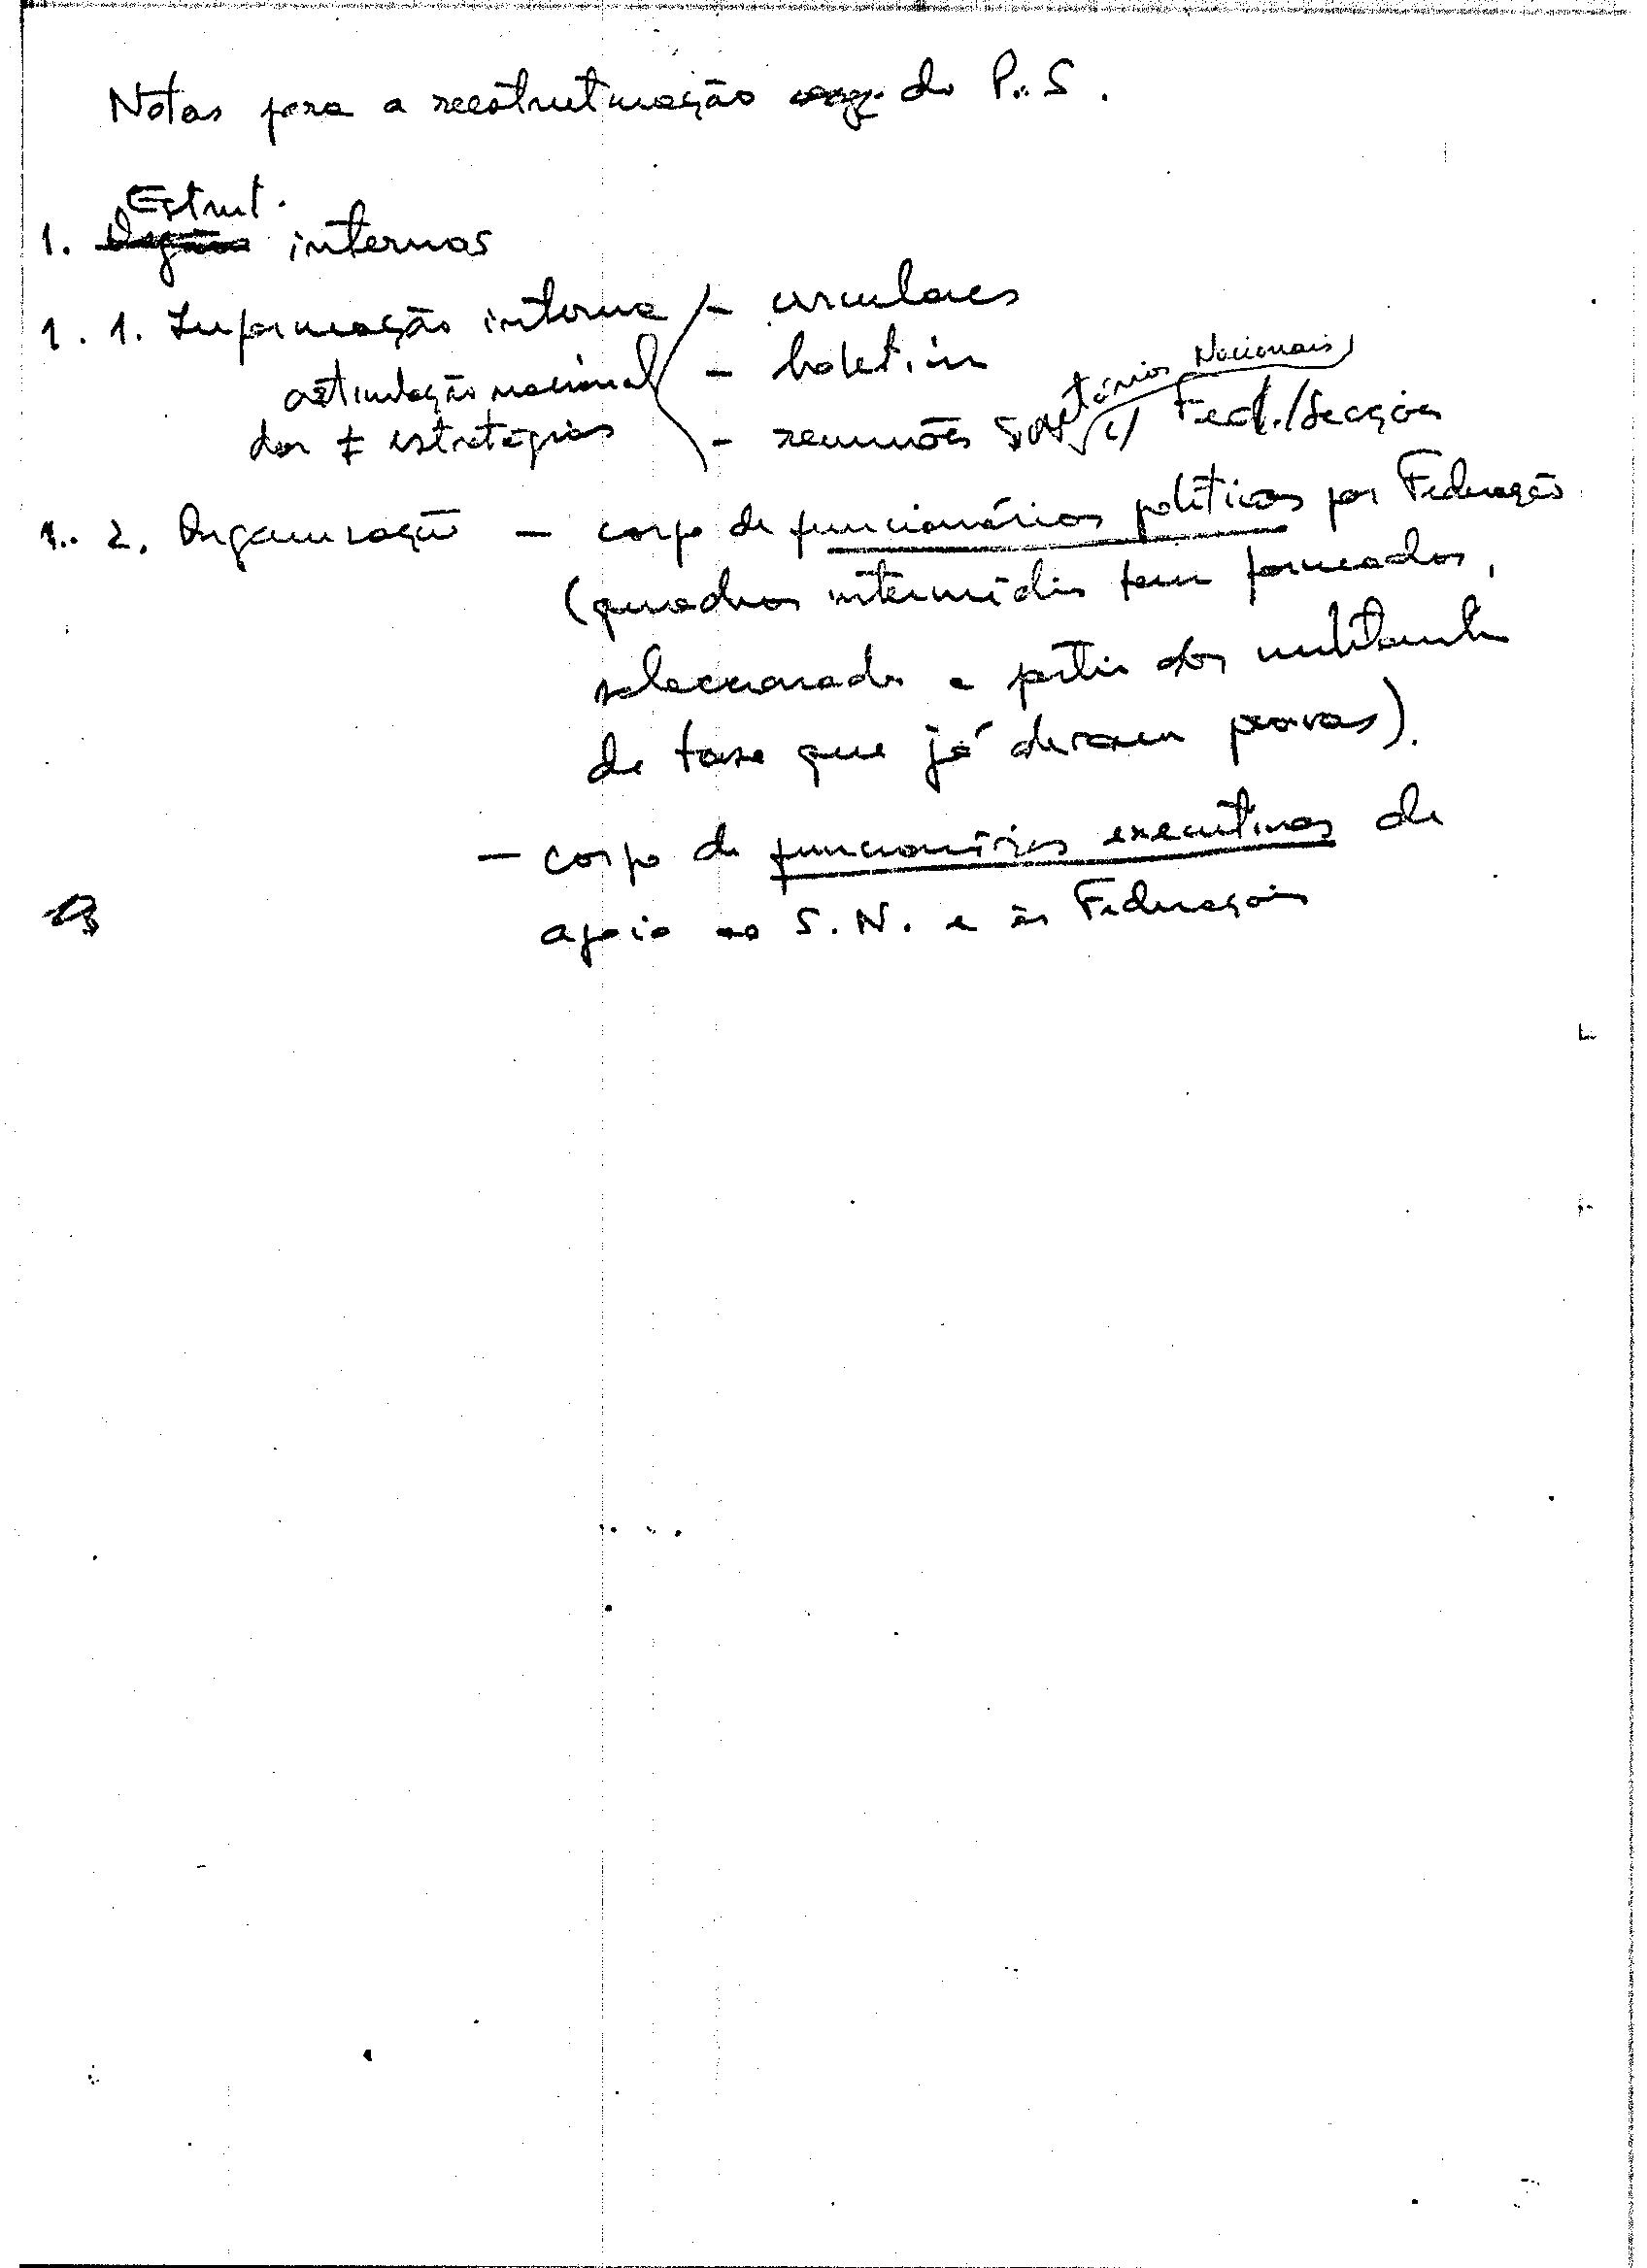 Notas para a reestruturação do P.S.
Estrut.
1. Orgãos internos
1.1. Informação interna - circulares
articulação nacional - boletim
das ≠ estratégias - reuniões Secretários Nacionais c/ Fed./Secções
1.2. Organização - corpo de funcionários políticos por Federação
(quadros intermédios bem formados,
seleccionados a partir dos militantes
de base que já deram provas).
- corpo de funcionários executivos de
apoio ao S.N. e às Federações